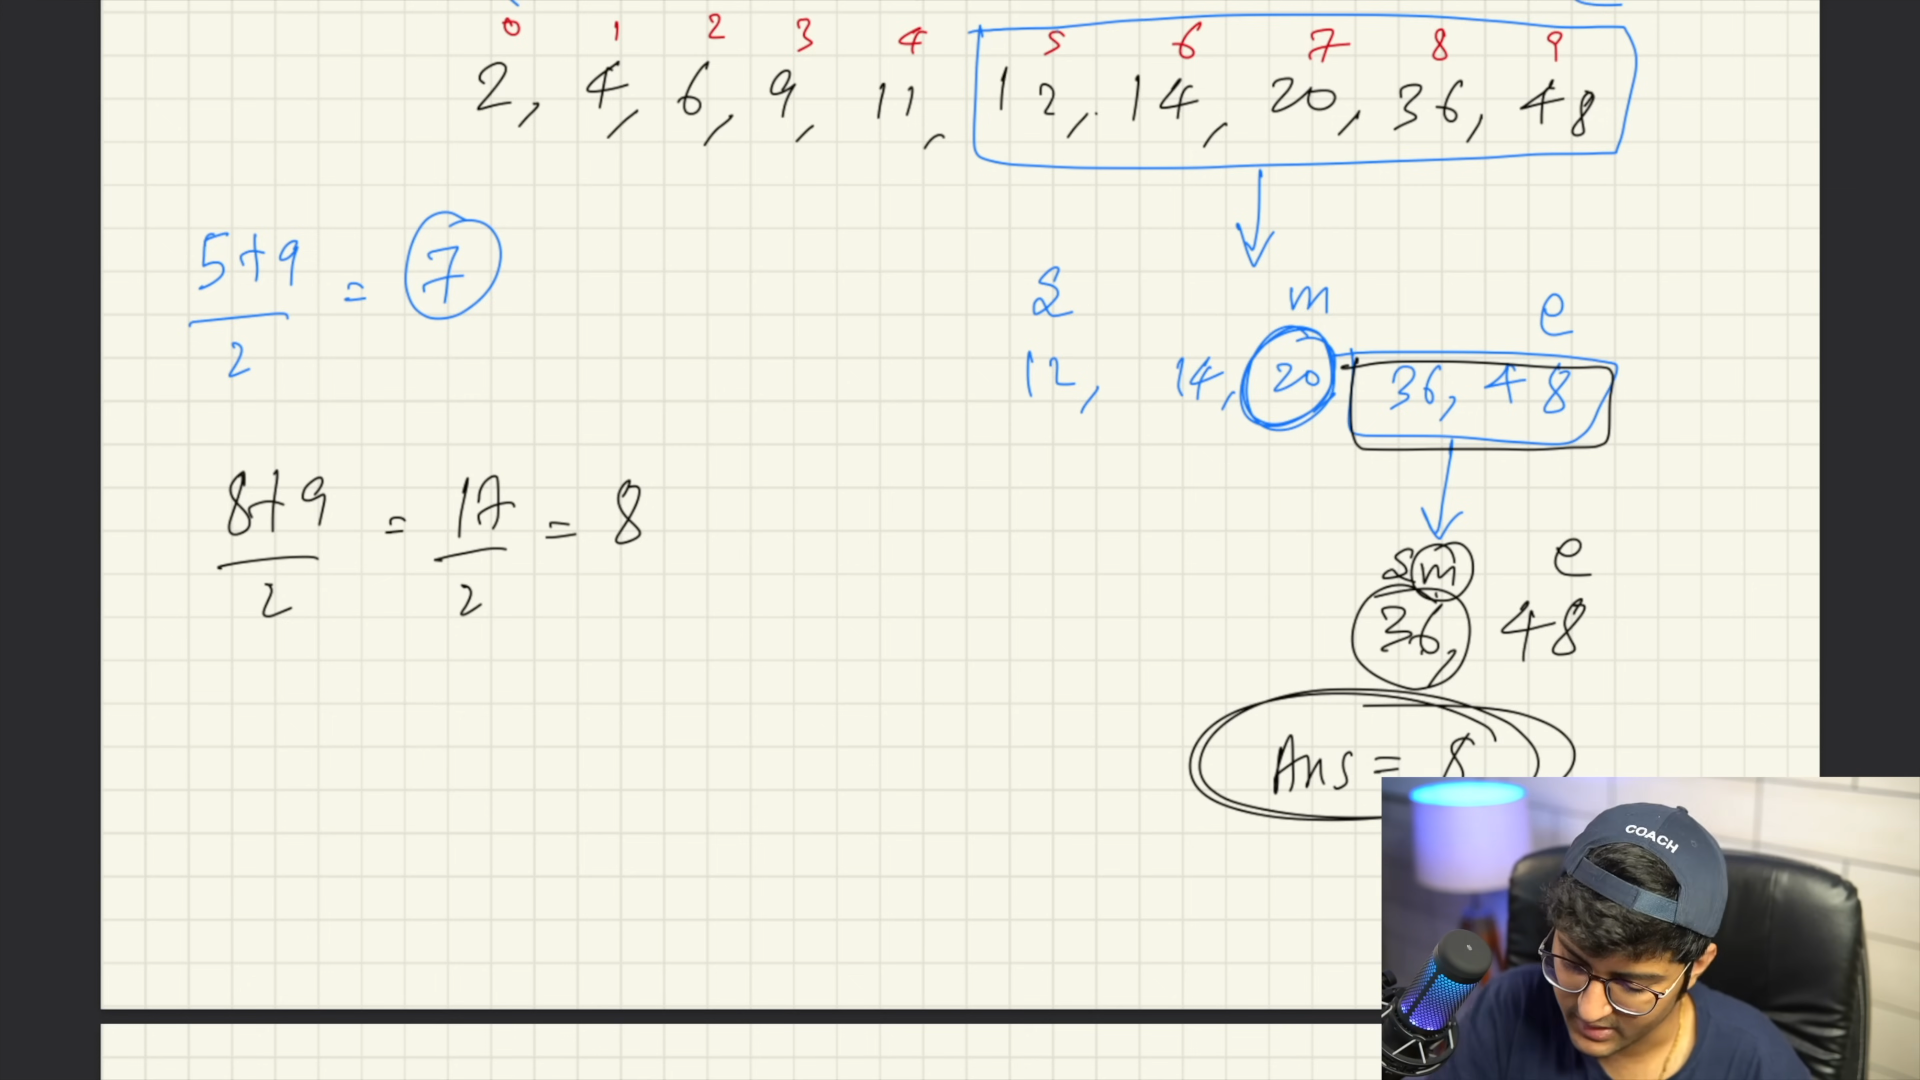 0 1 2 3 4 5 6 7 8 9
2, 4, 6, 9, 11, 12, 14, 20, 36, 48
5+9
2
= 7
S m e
12, 14, 20 36, 48
8+9
2
= 17
2
= 8
S m e
36, 48
Ans = 8
COACH